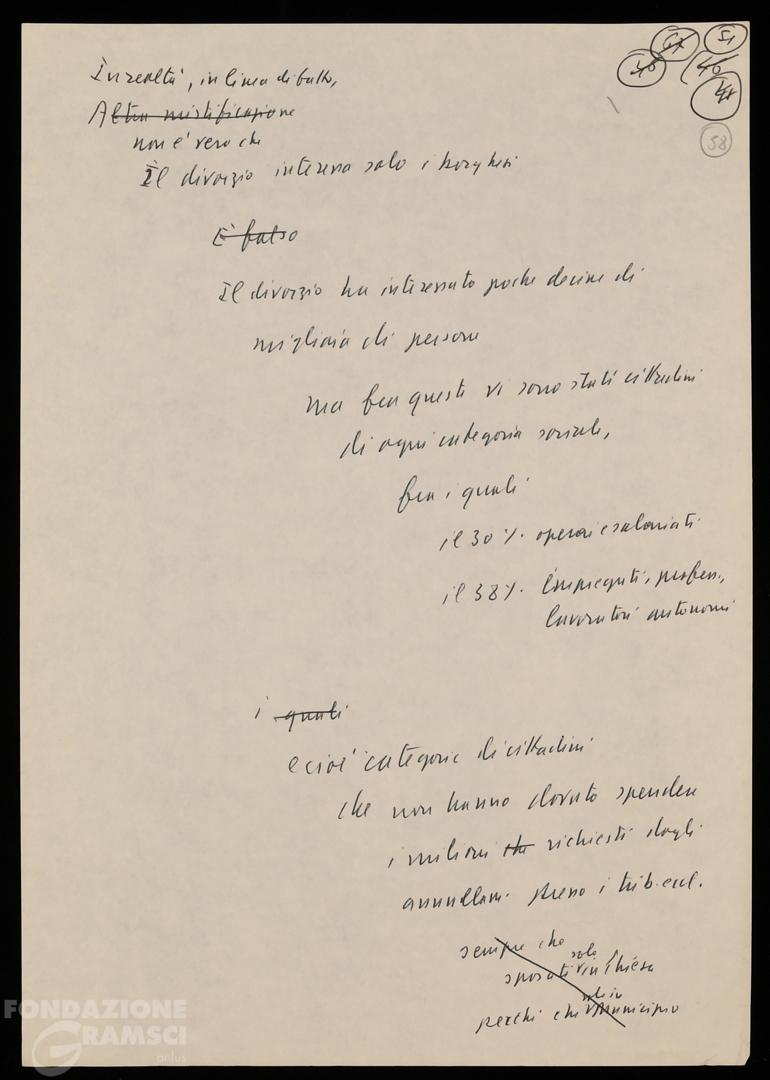 51
47
46
46
48
58
In realtà, in linea di fatto,
Altra mistificazione
non è vero che
Il divorzio interessa solo i borghesi
È falso
Il divorzio ha interessato poche decine di
migliaia di persone
ma fra questi vi sono stati cittadini
di ogni categoria sociale,
fra i quali
il 30% operai e salariati
il 38% impiegati, profess.,
lavoratori autonomi
i quali
e cioè categorie di cittadini
che non hanno dovuto spendere
i milioni che richiesti dagli
annullam. presso i trib. eccl.
sempre che
solo
sposati in chiesa
solo in
perché chi Municipio
FONDAZIONE
GRAMSCI
onlus